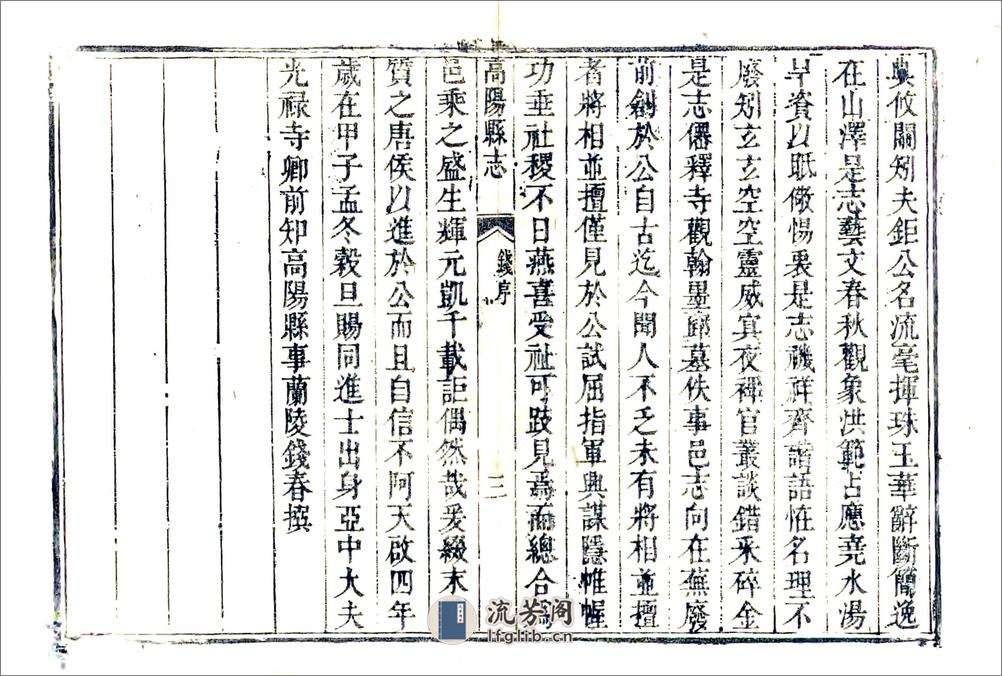 典攸關矧夫鉅公名流毫揮珠玉華辭斷簡逸
在山澤是志藝文春秋觀象洪範占應堯水湯
旱資以眂儆惕衷是志禨祥齊諧語恠名理不
廢矧玄玄空空靈威寘夜裨官叢談錯采碎金
是志僊釋寺觀翰墨鄉墓佚事邑志向在蕪廢
前創於公自古迄今聞人不乏未有將相並擅
者將相並擅僅見於公試屈指軍興謀隱帷幄
功垂社稷不日燕喜受祉可跂見焉而總合為
高陽縣志
錢序
三
邑乘之盛生輝元凱千載詎偶然哉爰綴末
質之唐侯以進於公而且自信不阿天啟四年
歲在甲子孟冬穀旦賜同進士出身亞中大夫
光祿寺卿前知高陽縣事蘭陵錢春撰
流芳阁
lfglib.cn